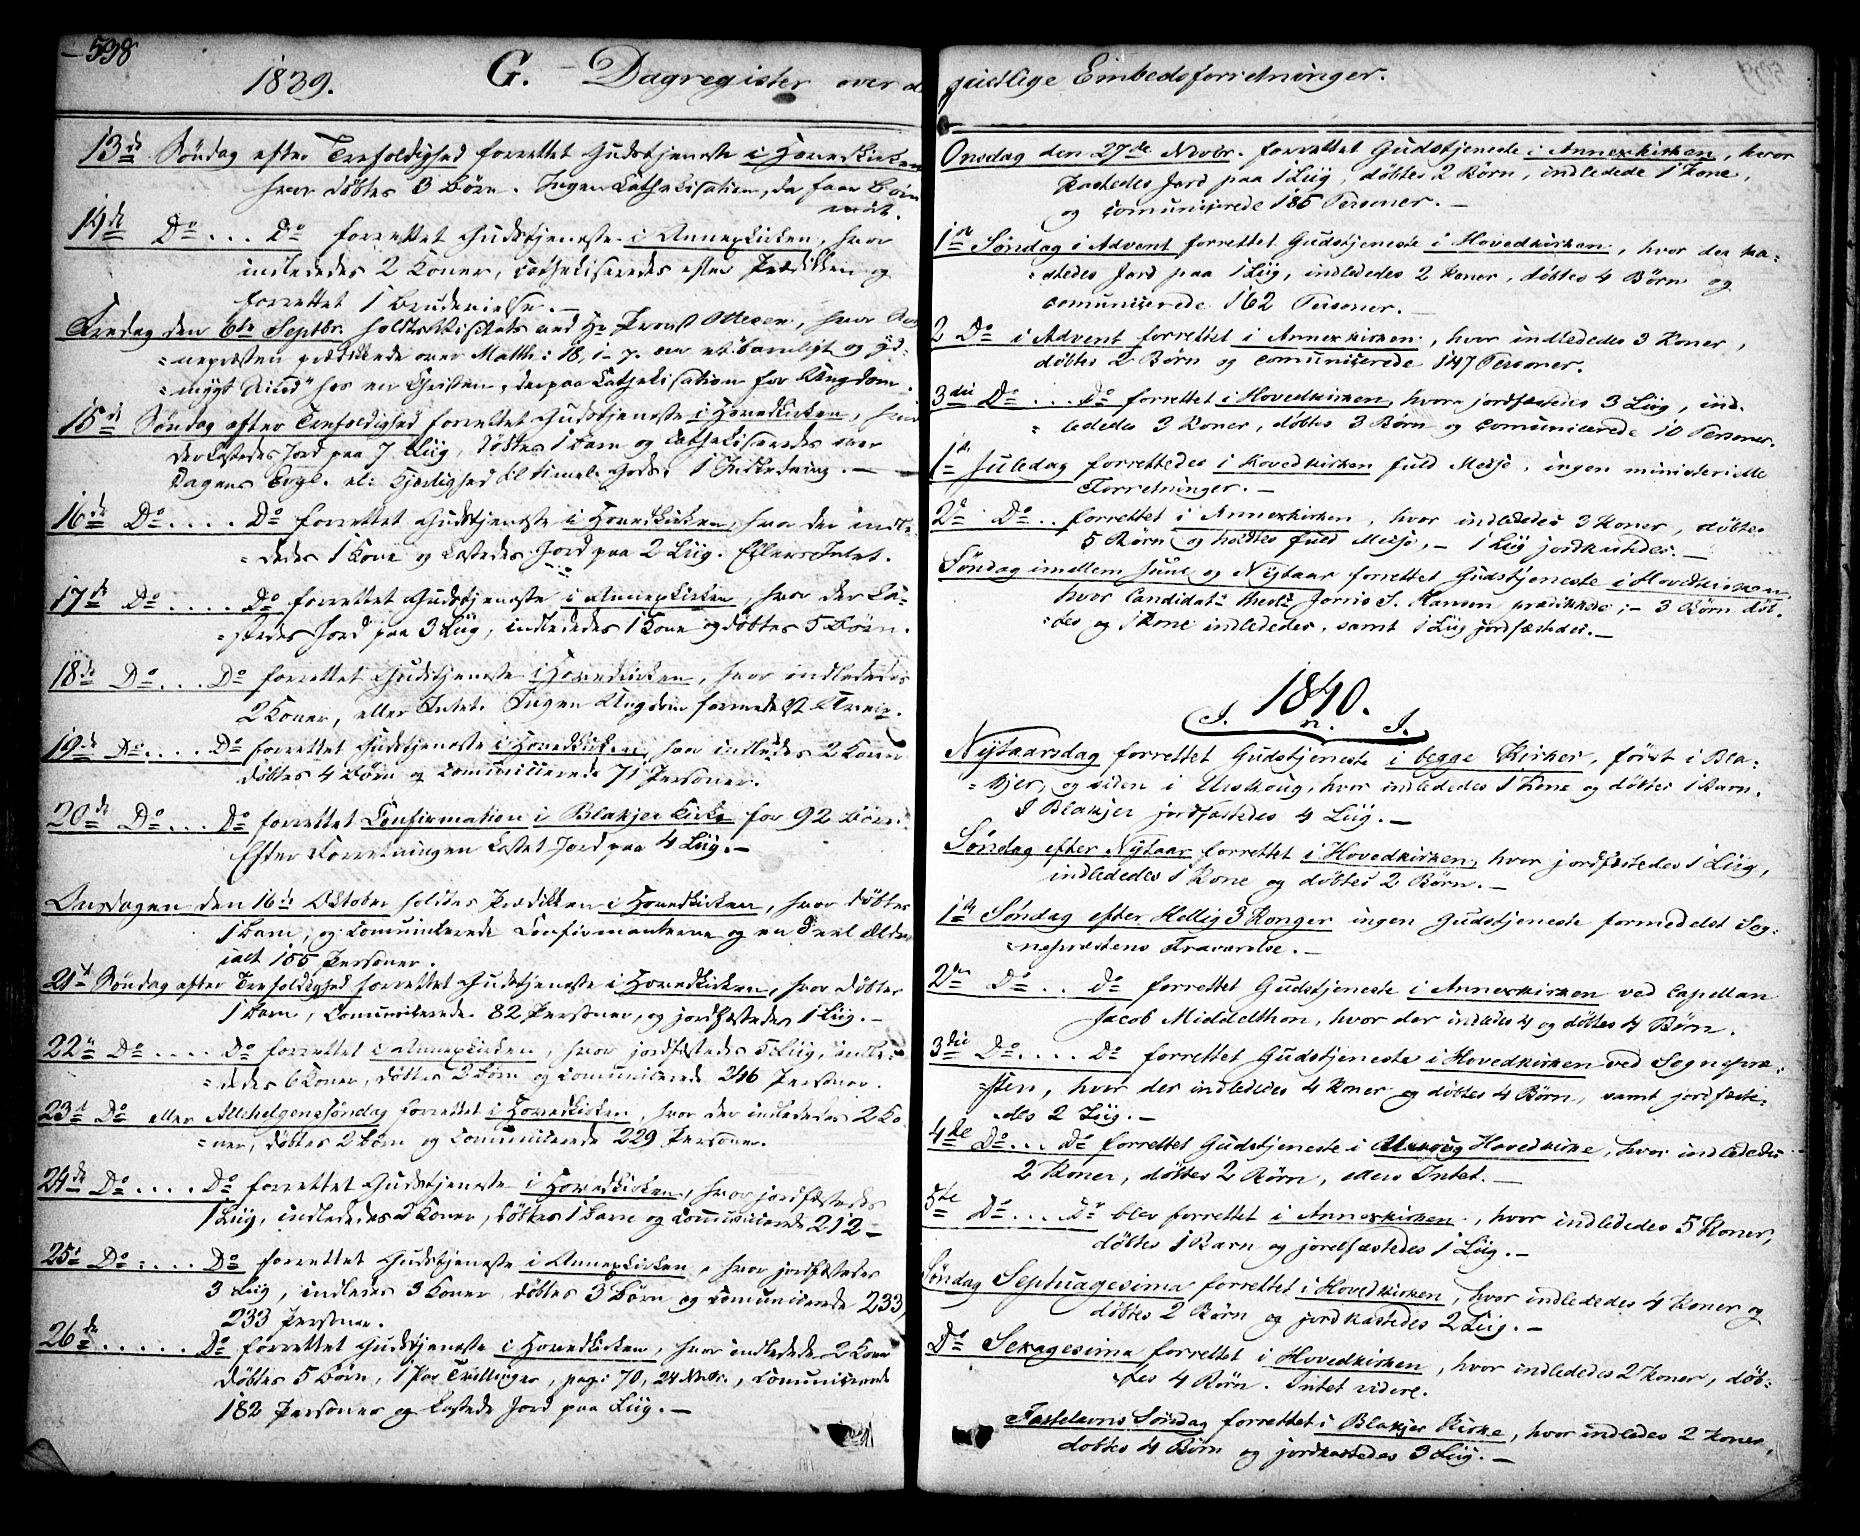 538
1839. G. Dagregister over de
13de Søndag efter Trefoldighed forrettet Gudstjeneste i Hovedkirken
hvor døbtes 3 Børn. Ingen Cathekisation, da faae Børn
mødt.
14de Do ... Do forrettet Gudstjeneste i Annexkirken, hvor
indlededes 2 Koner, Cathekiseredes efter Prædikken og
forrettet 1 Brudevielse. —
Fredag den 6te Septbr. holdt Visitats ved Hr Provst Ottesen, hvor
=nepræsten prædikede over Matth: 18, 1-7. om et barnligt og yd-
=mygt Sind" hos en Christen, derpaa Cathekisation for Ungdom.
15de Søndag efter Trefoldighed forrettet Gudstjeneste i Hovedkirken, hvor
der kastedes Jord paa 7 Liig, døbtes 1 Barn og Cathekiseredes over
Dagens Evgl. 1 Indledning. —
16de Do .... Do forrettet Gudstjeneste i Hovedkirken, hvor der indle-
=dedes 1 Kone og kastedes Jord paa 2 Liig. Ellers Intet.
17de Do .... Do forrettet Gudstjeneste i Annexkirken, hvor der ka-
=stedes Jord paa 3 Liig, indlededes 1 Kone og døbtes 5 Børn.
18de Do ... Do forrettet Gudstjeneste i Hovedkirken, hvor indlededes
2 Koner, ellers Intet. Ingen Ungdom formedelst
19de Do .... Do forrettet Gudstjeneste i Hovedkirken, hvor indledes 2 Koner
døbtes 4 Børn og Comunicerede 71 Personer.
20de Do ... Do forrettet Confirmation i Blakjer Kirke for 92 Børn.
Efter Forretningen kastet Jord paa 4 Liig. —
Onsdagen den 16de Oktober holdtes Prædikken i Hovedkirken, hvor døbtes
1 Barn, og Comunicerede Confirmanterne og en Deel Ældre
ialt 155 Personer.
21de Søndag efter Trefoldighed forrettet Gudstjeneste i Hovedkirken, hvor døbtes
1 Barn, Comunicerede 82 Personer, og jordfæstedes 1 Liig. —
22de Do .... Do forrettet i Annexkirken, hvor jordfæstedes 5 Liig, indle-
=dedes 6 Koner, døbtes 3 Børn og Comunicerede 246 Personer.
23de Do eller Allehelgenesøndag forrettet i Hovedkirken, hvor der indlededes 2 Ko
=ner, døbtes 2 Børn og Comunicerede 229 Personer.
24de Do .... Do forrettet Gudstjeneste i Hovedkirken, hvor jordfæstedes
1 Liig, indlededes 3 Koner, døbtes 1 Barn og Comunicerede 212 —
25de Do .... Do forrettet Gudstjeneste i Annexkirken, hvor jordfæstedes
3 Liig, indledes 3 Koner, døbtes 3 Børn og Comunicerede 233
233 Personer.
26de ...... Do forrettet Gudstjeneste i Hovedkirken, hvor indledede 2 Koner
døbtes 5 Børn, 1 Par Tvillinger, pag: 70, 24 Novbr., Comunicerede
182 Personer og kastede Jord paa Liig. —
geistlige Embedsforretninger.
Onsdag den 27de Novbr. forrettet Gudstjeneste i Annexkirken, hvor
kastedes Jord paa 1 Liig, døbtes 2 Børn, indledede 1 Kone,
og comunicerede 185 Personer. —
1ste Søndag i Advent forrettet Gudstjeneste i Hovedkirken, hvor der ka-
=stedes Jord paa 1 Liig, indlededes 2 Koner, døbtes 4 Børn og
comunicerede 162 Personer. —
2 Do i Advent forrettet i Annexkirken, hvor indlededes 3 Koner,
døbtes 2 Børn og comunicerede 147 Personer.
3die Do ... Do forrettet i Hovedkirken, hvor jordfæstedes 3 Liig, ind-
=lededes 3 Koner, døbtes 3 Børn og comunicerede 10 Personer.
1ste Juledag forrettedes i Hovedkirken fuld Messe, ingen ministerielle
Forretninger. —
2de Do .. forrettet i Annexkirken, hvor indlededes 3 Koner, døbtes
5 Børn og holdtes fuld Messe, — 1 Liig jordkastedes. —
Søndag imellem Juul og Nytaar forrettet Gudstjeneste i Hovedkirken,
hvor Candidat theol. Jorris S. Hansen prædikede; — 3 Børn døb-
=tes og 1 Kone indlededes, samt 1 Liig jordfæstedes. —
1840.
I. n. I.
Nytaarsdag forrettet Gudstjeneste i begge Kirker, først i Bla-
=kjer, og siden i Urskoug, hvor indlededes 1 Kone og døbtes 1 Barn.
I Blakjer jordfæstedes 4 Liig. —
Søndag efter Nytaar forrettet i Hovedkirken, hvor jordfæstedes 1 Liig,
indlededes 1 Kone og døbtes 2 Børn. —
1ste Søndag efter Hellig 3 Konger ingen Gudstjeneste formedelst Sog-
=nepræstens Fraværelse. —
2den Do .. Do forrettet Gudstjeneste i Annexkirken ved Capellan
Jacob Middelthon, hvor der indledes 4 og døbtes 4 Børn.
3die Do .... Do forrettet Gudstjeneste i Hovedkirken ved Sognepræ-
=sten, hvor der indlededes 4 Koner og døbtes 4 Børn, samt jordfæste-
=des 2 Liig. —
4de Do ... Do forrettet Gudstjeneste i Urskoug Hovedkirke, hvor indlededes
2 Koner, døbtes 2 Børn, ellers Intet. —
5te Do ... Do blev forrettet i Annexkirken, hvor indlededes 5 Koner,
døbtes 1 Barn og jordfæstedes 1 Liig. —
Søndag Septuagesima forrettet i Hovedkirken, hvor indlededes 4 Koner og
døbtes 2 Børn og jordkastedes 2 Liig. —
Do Sexagesima forrettet i Hovedkirken, hvor indlededes 2 Koner, døb-
=tes 4 Børn. Intet videre.
Fastelavns Søndag forrettet i Blakjer Kirke, hvor indlededes 2 Koner,
døbtes 4 Børn og jordkastedes 3 Liig. —